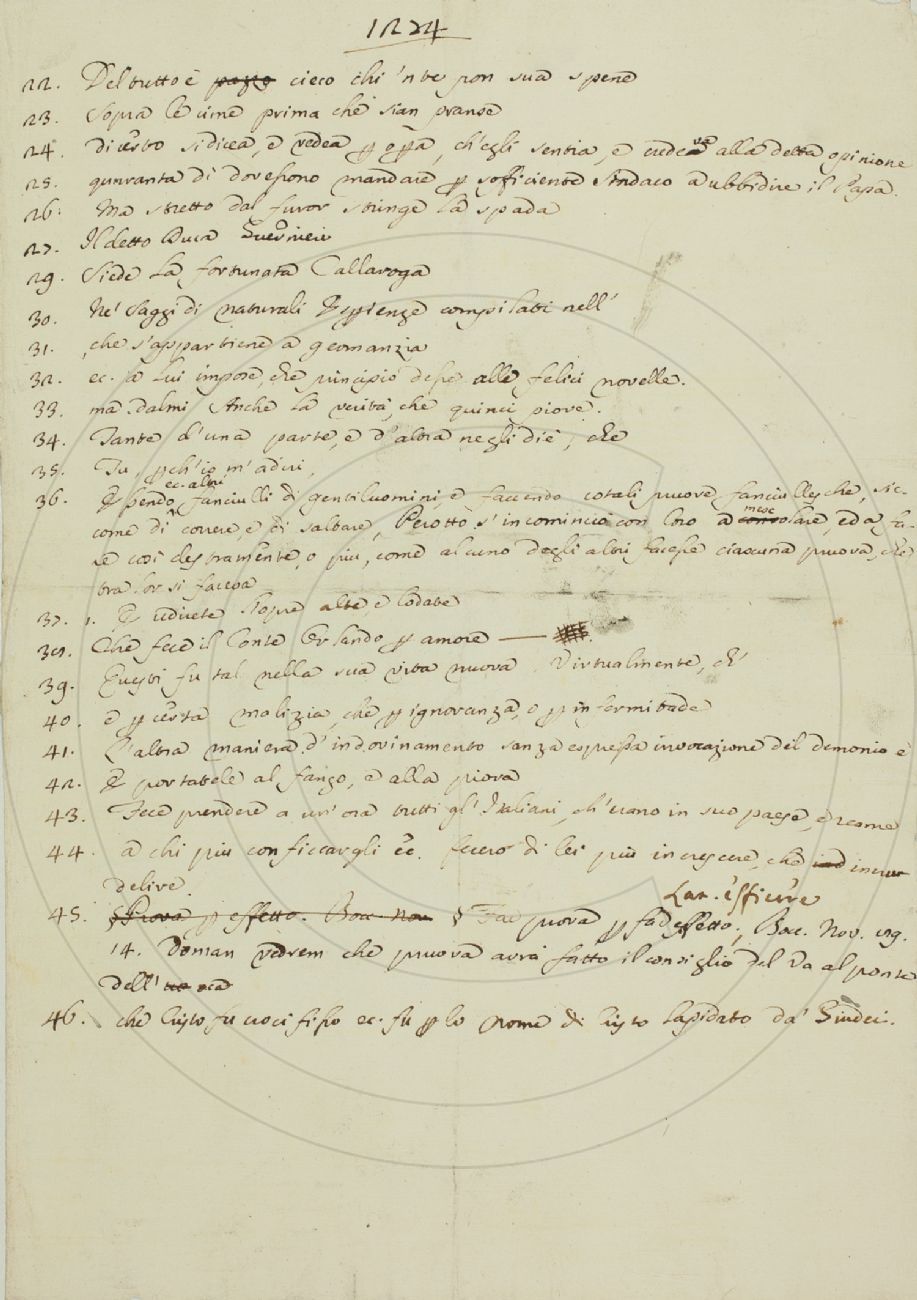 1224
22. Del tutto è cieco chi 'n te pon sua spene
23. Sopra le cime prima che sian pranse
24. di certo si dicea, e vedea p op̄a, ch'egli sentia, e credea alla detta opinione
25. quaranta dì dovessono mandare p sofficiente sindaco a ubbidire il Papa
26. Ma stretto dal furor stringe la spada
27. Il detto Duca Guernieri
29. Siede la fortunata Callaroga
30. Ne' Saggi di naturali Esperienze compilati nell'
31. che s'appartiene a geomanzia
32. ec. a lui impose, che principio desse alle felici novelle.
33. ma dalmi Anche la verità, che quinci piove.
34. Tante d'una parte, e d'altra negli diè, che
35. Tu, pch'io m'adiri,
ec. altri
36. Essendo fanciulli di gentiluomini, e faccendo cotali pruove fanciullesche, sic-
come di correre, e di saltare, Perotto s'incominciò con loro a mescolare, ed a fa-
re così destramente, o più, come alcuno degli altri facesse ciascuna pruova, che
tra lor si faceva
37. 1. E udirete sopra alte e lodate
38. Che fece il Conte Orlando p amore —
39. Questi fu tal nella sua vita nuova Virtualmente, ch'
40. e p certa malizia, che p ignoranza, o p infermitade
41. L'altra maniera d'indovinamento sanza espressa invocazione del demonio è
42. E portatele al fango, e alla piova
43. Fece prendere a un'ora tutti gl'Italiani, ch'erano in suo paese, e come
44. a chi più conficcargli ec. fecero di lei più increscere, che incru-
delire.
Lat. efficere
45. Prova p effetto. Bocc. Nov. Far pruova p far effetto, Bocc. Nov. 29.
14. Doman vedrem che pruova avrà fatto il consiglio del Va al ponte
dell' oca
46. che Cristo fu crocifisso ec. fu p lo nome di Cristo lapidato da' Giudei.